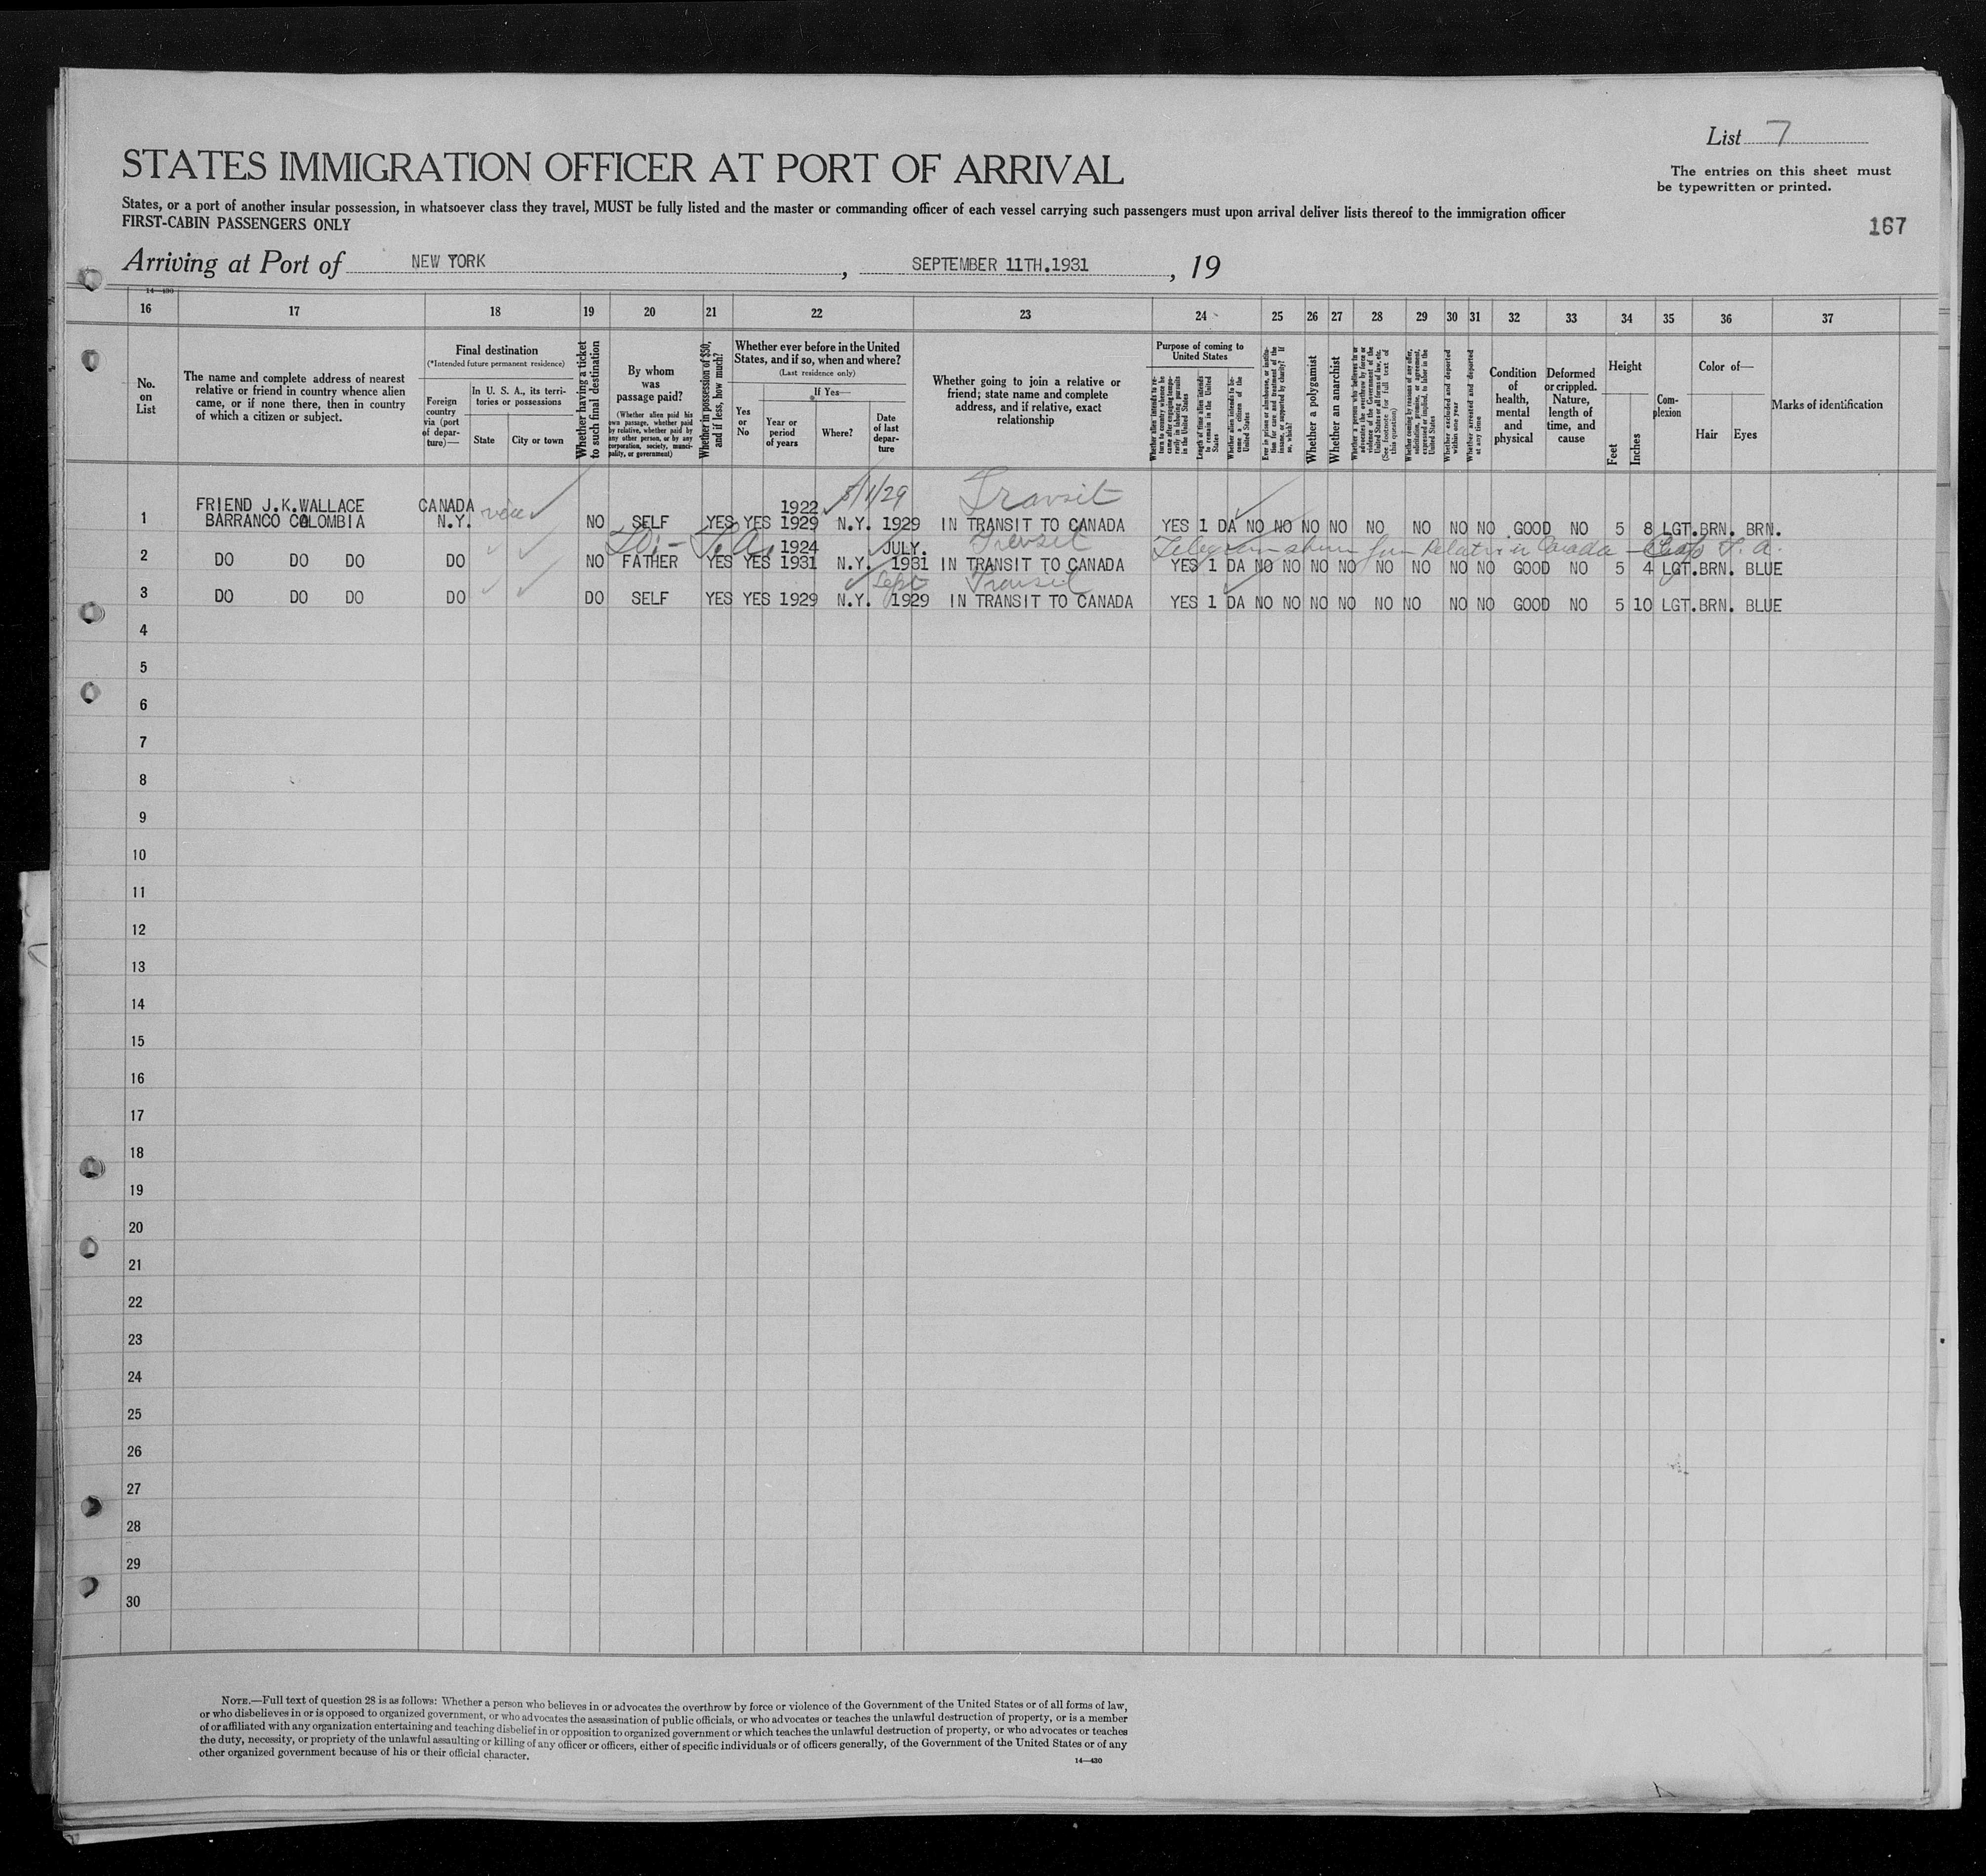 List 7
STATES IMMIGRATION OFFICER AT PORT OF ARRIVAL
The entries on this sheet must
be typewritten or printed.
States, or a port of another insular possession, in whatsoever class they travel, MUST be fully listed and the master or commanding officer of each vessel carrying such passengers must upon arrival deliver lists thereof to the immigration officer
FIRST-CABIN PASSENGERS ONLY
167
Arriving at Port of NEW YORK, SEPTEMBER 11TH.1931, 19
14—430
16 17 18 19 20 21 22 23 24 25 26 27 28 29 30 31 32 33 34 35 36 37
No. on List
The name and complete address of nearest relative or friend in country whence alien came, or if none there, then in country of which a citizen or subject.
Final destination
(*Intended future permanent residence)
Foreign country via (port of departure)—
In U. S. A., its territories or possessions
State
City or town
Whether having a ticket to such final destination
By whom was passage paid?
(Whether alien paid his own passage, whether paid by relative, whether paid by any other person, or by any corporation, society, municipality, or government)
Whether in possession of $50, and if less, how much?
Whether ever before in the United States, and if so, when and where?
(Last residence only)
Yes or No
If Yes—
Year or period of years
Where?
Date of last departure
Whether going to join a relative or friend; state name and complete address, and if relative, exact relationship
Purpose of coming to United States
Whether alien intends to return to country whence he came after engaging temporarily in laboring pursuits in the United States
Length of time alien intends to remain in the United States
Whether alien intends to become a citizen of the United States
Ever in prison or almshouse, or institution for care and treatment of the insane, or supported by charity? If so, which?
Whether a polygamist
Whether an anarchist
Whether a person who believes in or advocates the overthrow by force or violence of the Government of the United States or all forms of law, etc. (See footnote for full text of this question)
Whether coming by reason of any offer, solicitation, promise, or agreement, expressed or implied, to labor in the United States
Whether excluded and deported within one year
Whether arrested and deported at any time
Condition of health, mental and physical
Deformed or crippled. Nature, length of time, and cause
Height
Feet
Inches
Complexion
Color of—
Hair
Eyes
Marks of identification
8/1/29 Transit
FRIEND J.K.WALLACE CANADA 1922
1 BARRANCO COLOMBIA N.Y. NO SELF YES YES 1929 N.Y. 1929 IN TRANSIT TO CANADA YES 1 DA NO NO NO NO NO NO NO NO GOOD NO 5 8 LGT.BRN. BRN.
1924 JULY. Transit Telegram shown from Relative in Canada
2 DO DO DO DO NO FATHER YES YES 1931 N.Y. 1931 IN TRANSIT TO CANADA YES 1 DA NO NO NO NO NO NO NO NO GOOD NO 5 4 LGT.BRN. BLUE
Sept Transit
3 DO DO DO DO DO SELF YES YES 1929 N.Y. 1929 IN TRANSIT TO CANADA YES 1 DA NO NO NO NO NO NO NO NO GOOD NO 5 10 LGT.BRN. BLUE
4
5
6
7
8
9
10
11
12
13
14
15
16
17
18
19
20
21
22
23
24
25
26
27
28
29
30
NOTE.—Full text of question 28 is as follows: Whether a person who believes in or advocates the overthrow by force or violence of the Government of the United States or of all forms of law,
or who disbelieves in or is opposed to organized government, or who advocates the assassination of public officials, or who advocates or teaches the unlawful destruction of property, or is a member
of or affiliated with any organization entertaining and teaching disbelief in or opposition to organized government or which teaches the unlawful destruction of property, or who advocates or teaches
the duty, necessity, or propriety of the unlawful assaulting or killing of any officer or officers, either of specific individuals or of officers generally, of the Government of the United States or of any
other organized government because of his or their official character.
14—430